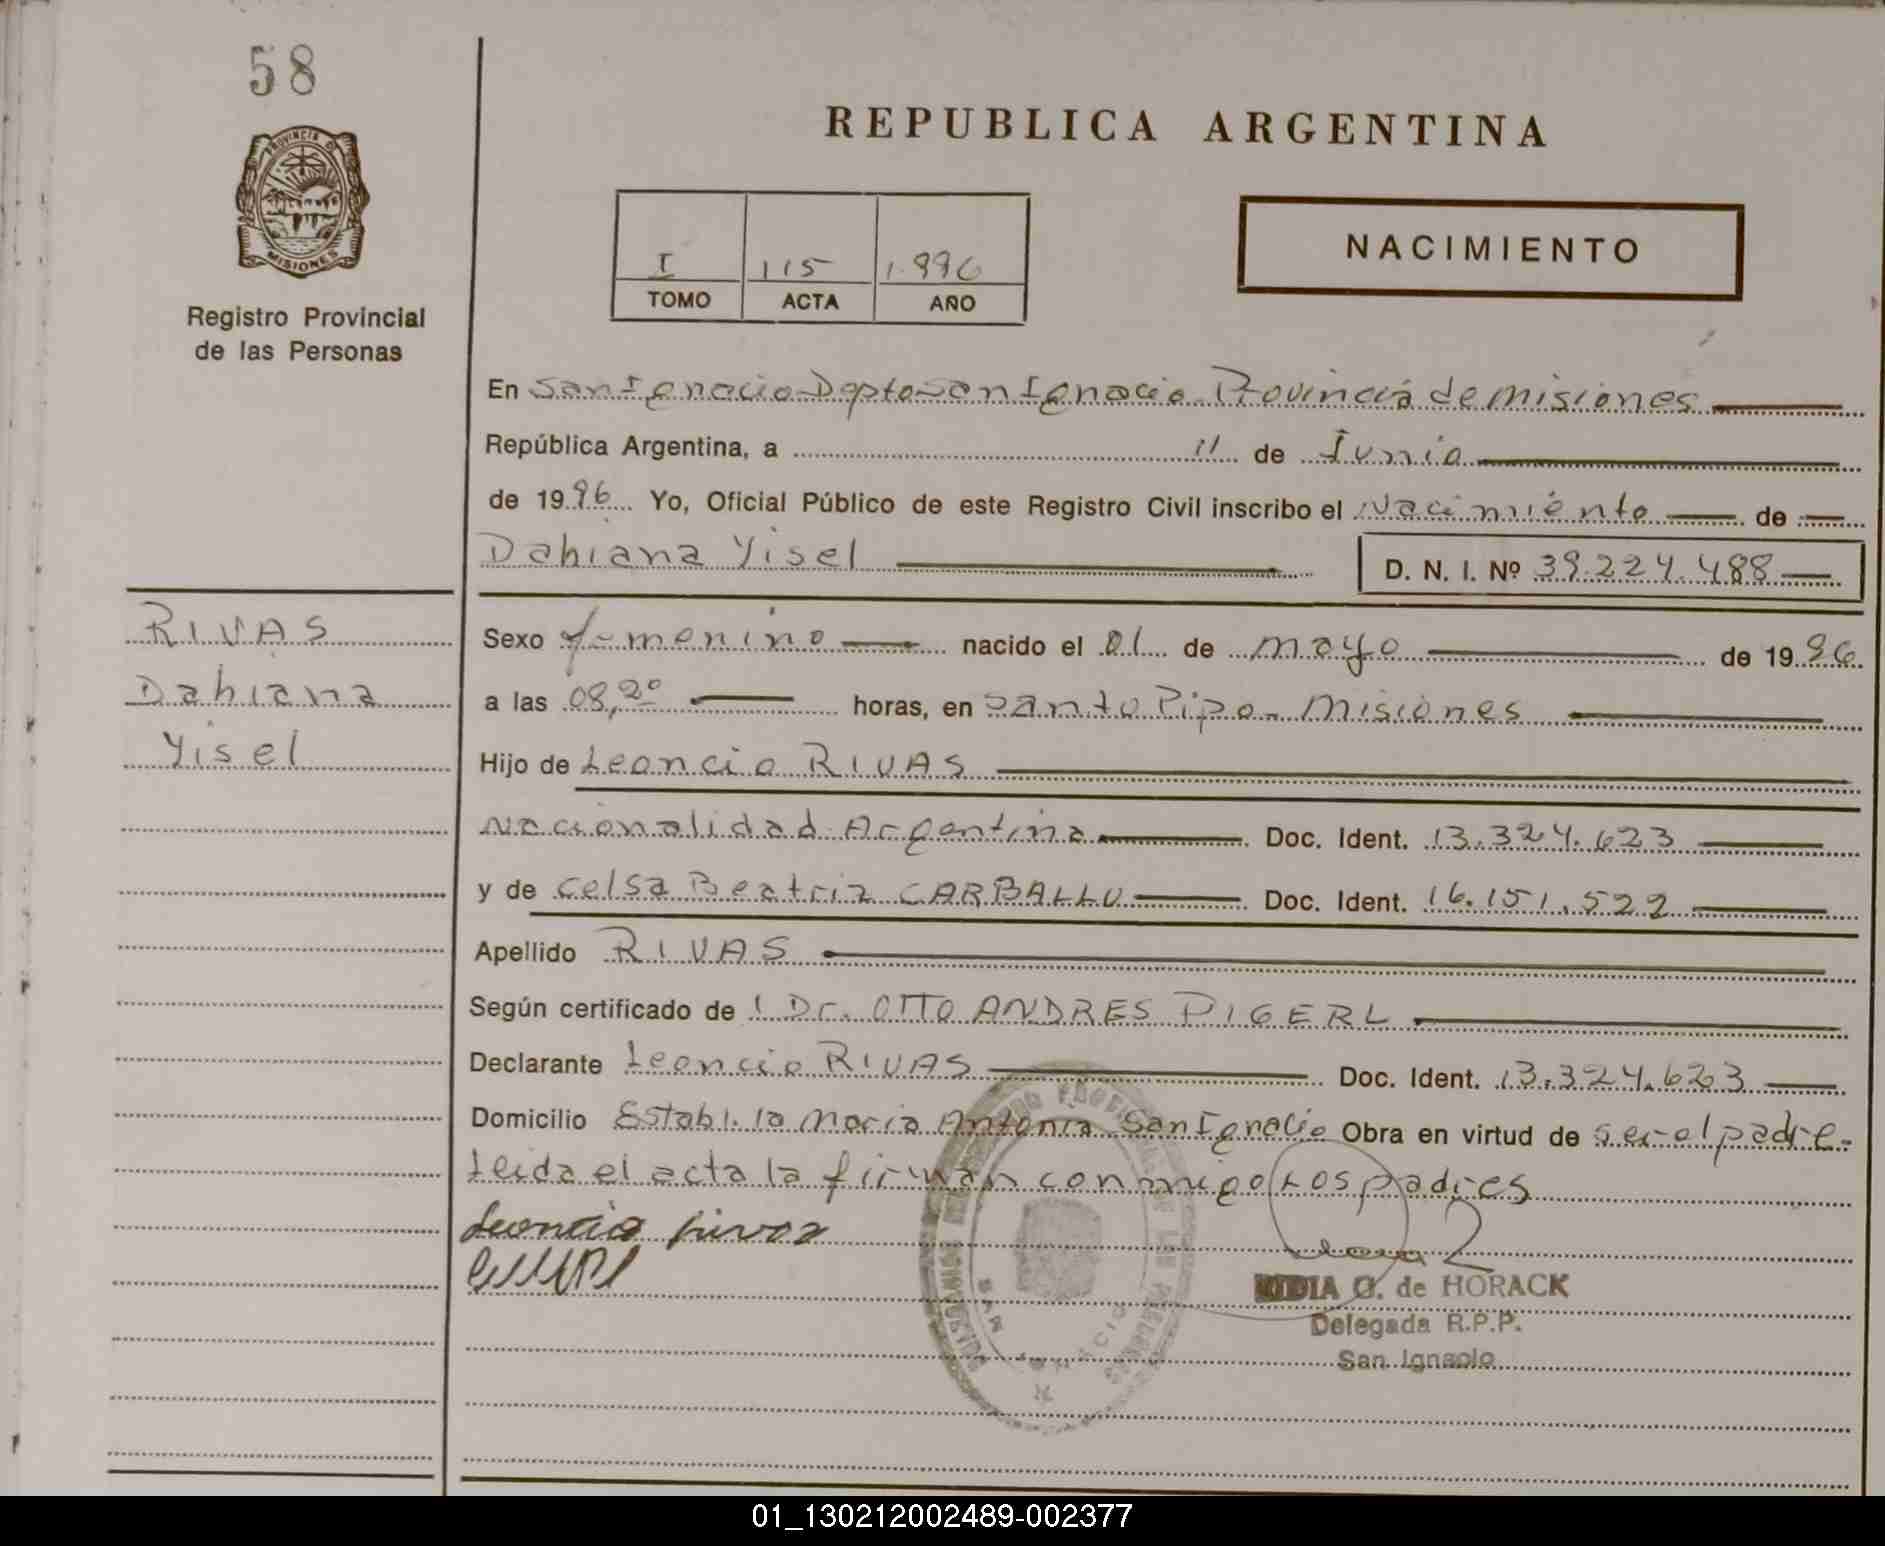 58
PROVINCIA D
MISIONES
Registro Provincial
de las Personas
REPUBLICA ARGENTINA
I 115 1.996
TOMO ACTA AÑO
NACIMIENTO
En San Ignacio Dpto San Ignacio Provincia de misiones
República Argentina, a 11 de Junio
de 1996 Yo, Oficial Público de este Registro Civil inscribo el Nacimiento de
Dahiana Yisel D. N. I. Nº 39.224.488
RIVAS
Dahiana
Yisel
Sexo femenino nacido el 01 de mayo de 1996
a las 08,20 horas, en Santo Pipo - Misiones
Hijo de Leoncio RIVAS
Nacionalidad Argentina Doc. Ident. 13.324.623
y de Celsa Beatriz CARBALLO Doc. Ident. 16.151.522
Apellido RIVAS
Según certificado de l Dr. OTTO ANDRES PIGERL
Declarante Leoncio RIVAS Doc. Ident. 13.324.623
Domicilio Establ. la Maria Antonia San Ignacio Obra en virtud de ser el padre -
Leida el acta la firman conmigo Los padres
Leoncio Rivas
G. de HORACK
Delegada R.P.P.
San Ignacio
01_130212002489-002377